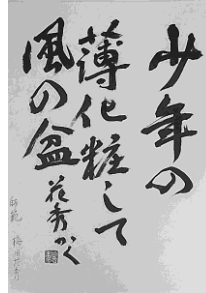 少年の
薄化粧して
風の盆
花秀かく
師範